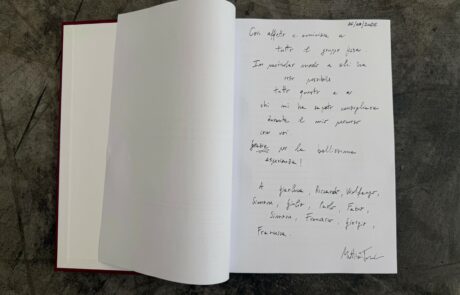 Con affetto e ammirazione a
tutto il gruppo
In particolar modo a chi ha
reso possibile
tutto questo e a
chi mi ha saputo
durante il mio percorso
con voi.
Grazie per la bellissima
esperienza!
A Gianluca, Riccardo, Wolfango,
Simona, Giulio, Paolo, Fabio,
Simona, Francesco, Giorgio,
Francesca.